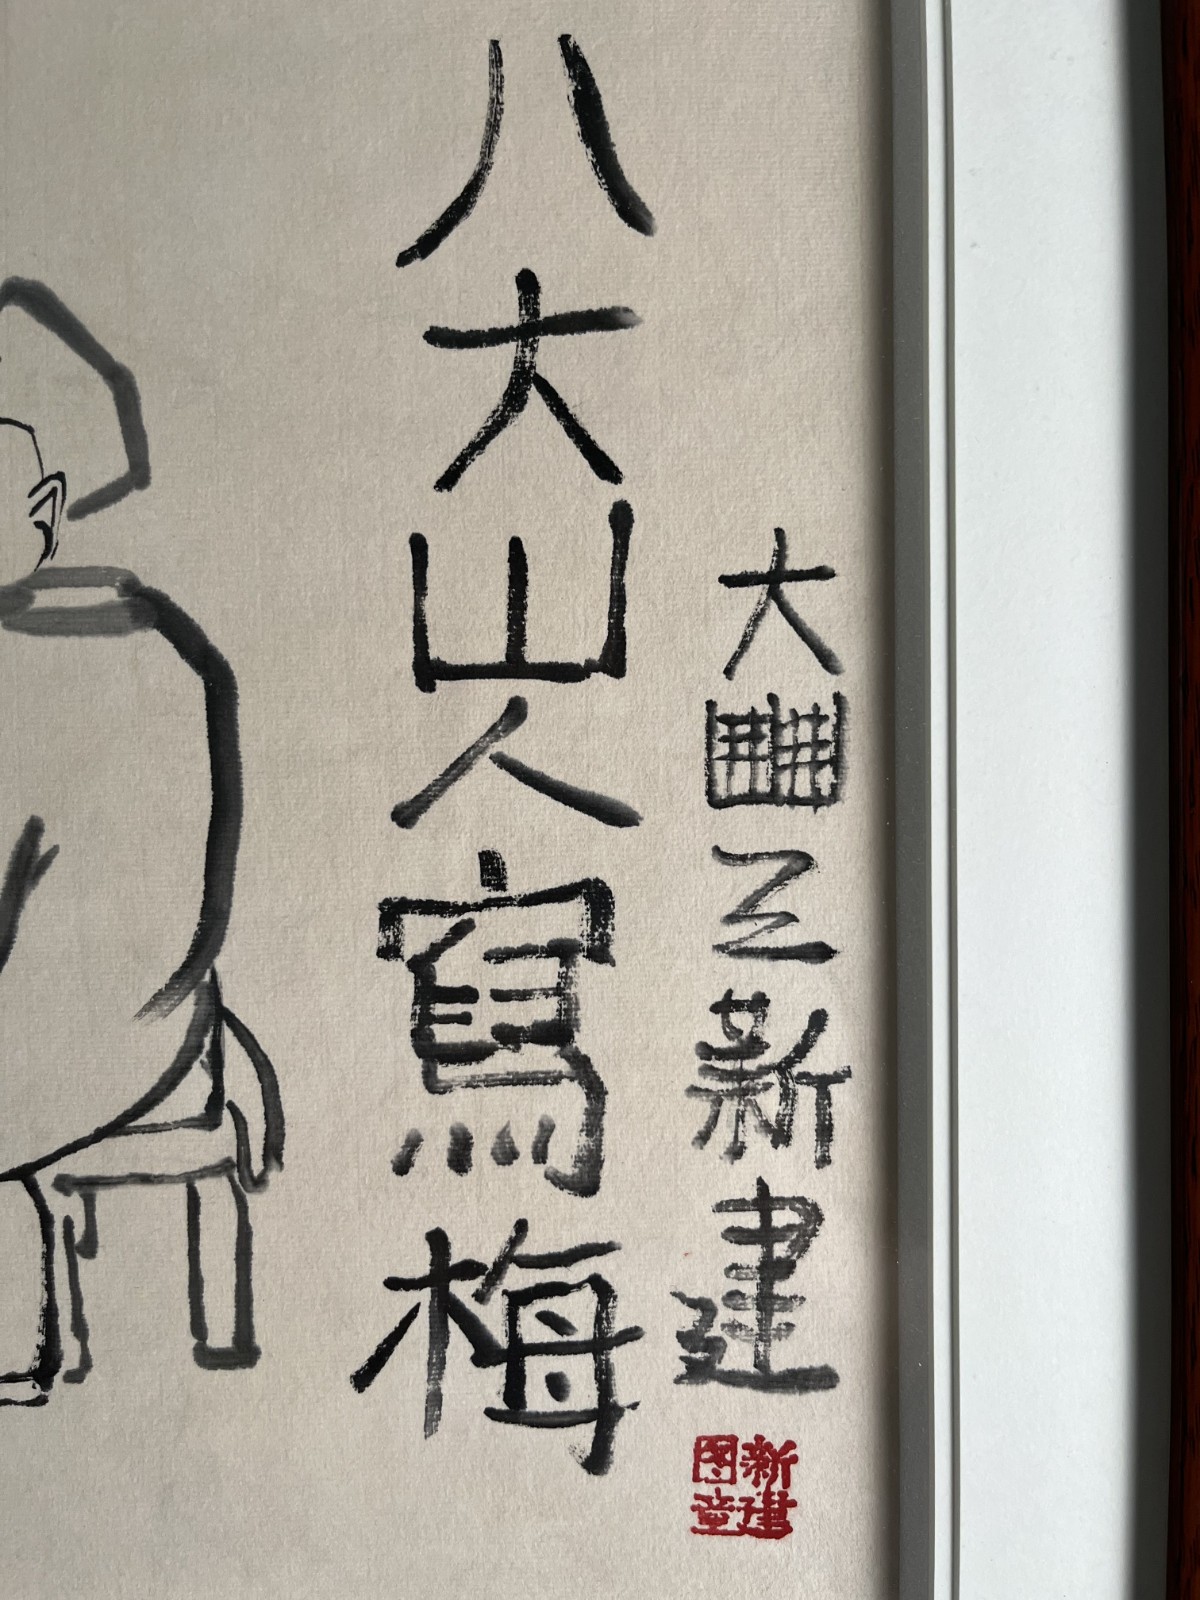 八大山人寫梅
大豐新建
新建
图章